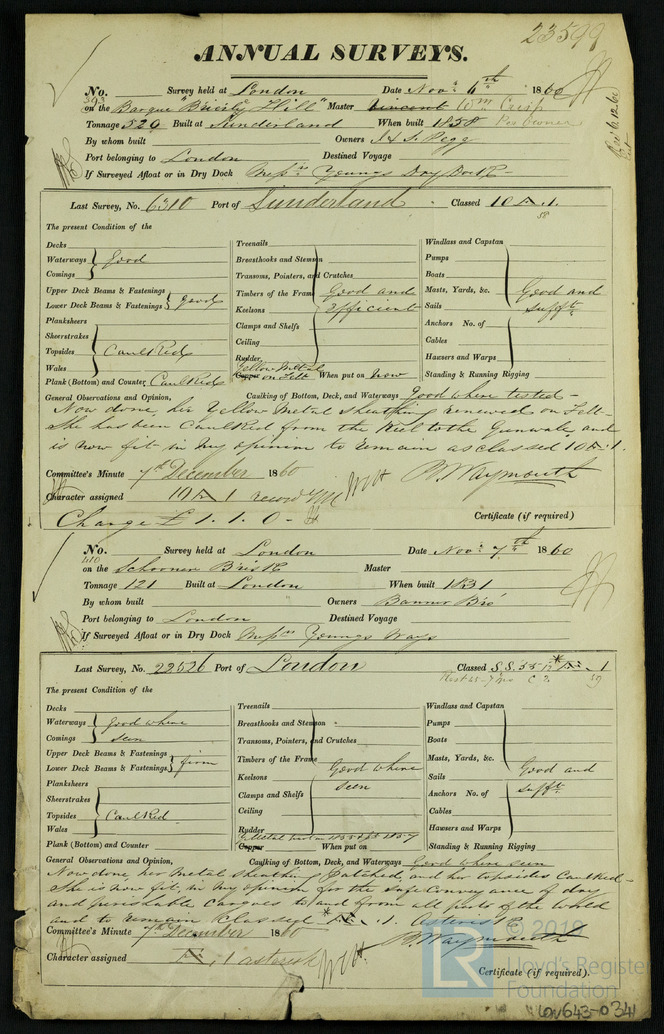 23599
ANNUAL SURVEYS.
No. 593 Survey held at London Date Novr. 6th 1860
on the Barque "Brierly Hill" Master Wm Crisp
Tonnage 520 Built at Sunderland When built 1858
By whom built Owners J & S. Pegg
Port belonging to London Destined Voyage
If Surveyed Afloat or in Dry Dock Messrs Youngs Dry Dock
Last Survey, No. 6310 Port of Sunderland Classed 10 A. 1.
58
The present Condition of the
Decks
Waterways Good
Comings
Upper Deck Beams & Fastenings
Lower Deck Beams & Fastenings good
Planksheers
Sheerstrakes
Topsides Caulked
Wales
Plank (Bottom) and Counter, Caulked
Treenails
Breasthooks and Stemson
Transoms, Pointers, and Crutches
Timbers of the Frame Good and
Keelsons efficient
Clamps and Shelfs
Ceiling
Rudder
Yellow Metal
Copper on Felt When put on now
Windlass and Capstan
Pumps
Boats
Masts, Yards, &c. Good and
Sails sufft.
Anchors No. of
Cables
Hawsers and Warps
Standing & Running Rigging
General Observations and Opinion, Caulking of Bottom, Deck, and Waterways Good where tested -
Now done, her Yellow Metal Sheathing renewed on Felt -
She has been Caulked from the Keel to the Gunwale and
is now fit in my opinion to remain as classed 10 A. 1.
Committee's Minute 7th December 1860 W. Waymouth
Character assigned 10 A 1
Change £ 1. 1. 0 - Certificate (if required)
No. 610 Survey held at London Date Novr. 7th 1860
on the Schooner Brisk Master
Tonnage 121 Built at London When built 1831
By whom built Owners Banner Bro
Port belonging to London Destined Voyage
If Surveyed Afloat or in Dry Dock Messrs Youngs Ways
Last Survey, No. 22526 Port of London Classed S.S. 55 * A. 1
59
The present Condition of the
Decks
Waterways Good where
Comings seen
Upper Deck Beams & Fastenings
Lower Deck Beams & Fastenings firm
Planksheers
Sheerstrakes
Topsides Caulked
Wales
Plank (Bottom) and Counter
Treenails
Breasthooks and Stemson
Transoms, Pointers, and Crutches
Timbers of the Frame Good where
Keelsons seen
Clamps and Shelfs
Ceiling
Rudder
Copper When put on
Windlass and Capstan
Pumps
Boats
Masts, Yards, &c.
Sails Good and
Anchors No. of sufft.
Cables
Hawsers and Warps
Standing & Running Rigging
General Observations and Opinion, Caulking of Bottom, Deck, and Waterways Good where seen
Now done, her Metal Sheathing Patched, and her topsides Caulked -
She is now fit, in my opinion for the safe Conveyance of dry
and perishable Cargoes to and from all parts of the World
and to remain Classed * A. 1. Asterisk
Committee's Minute 7th December 1860 W. Waymouth
Character assigned A. 1 asterisk
Certificate (if required).
© 2019
LR Lloyd's Register
Foundation
LON643-0341